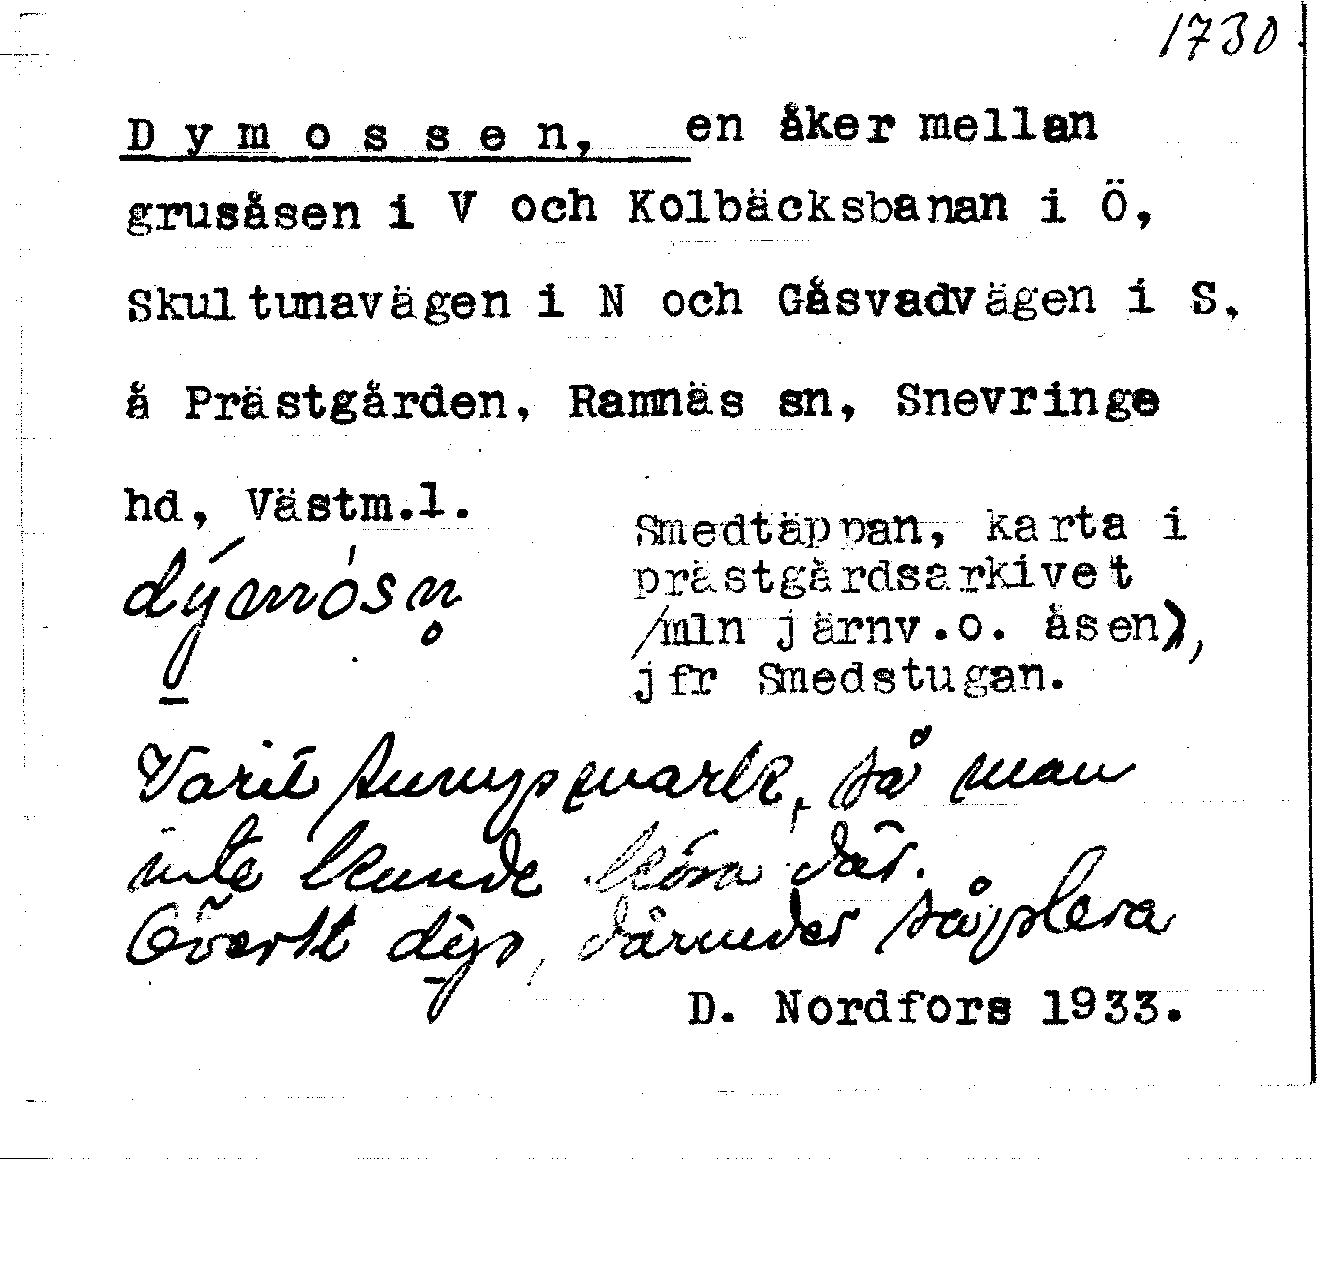 1730.
Dymossen, en åker mellan
grusåsen i V och Kolbäcksbanan i Ö,
Skultunavägen i N och Gåsvadvägen i S,
å Prästgården, Ramnäs sn, Snevringe
hd, Västm.l.
Smedtäppan, karta i
prästgårdsarkivet
/mln järnv.o. åsen),
jfr Smedstugan.
Varit sumpmark, så man
inte kunde köra där.
Överst dy, därunder såplera
D. Nordfors 1933.